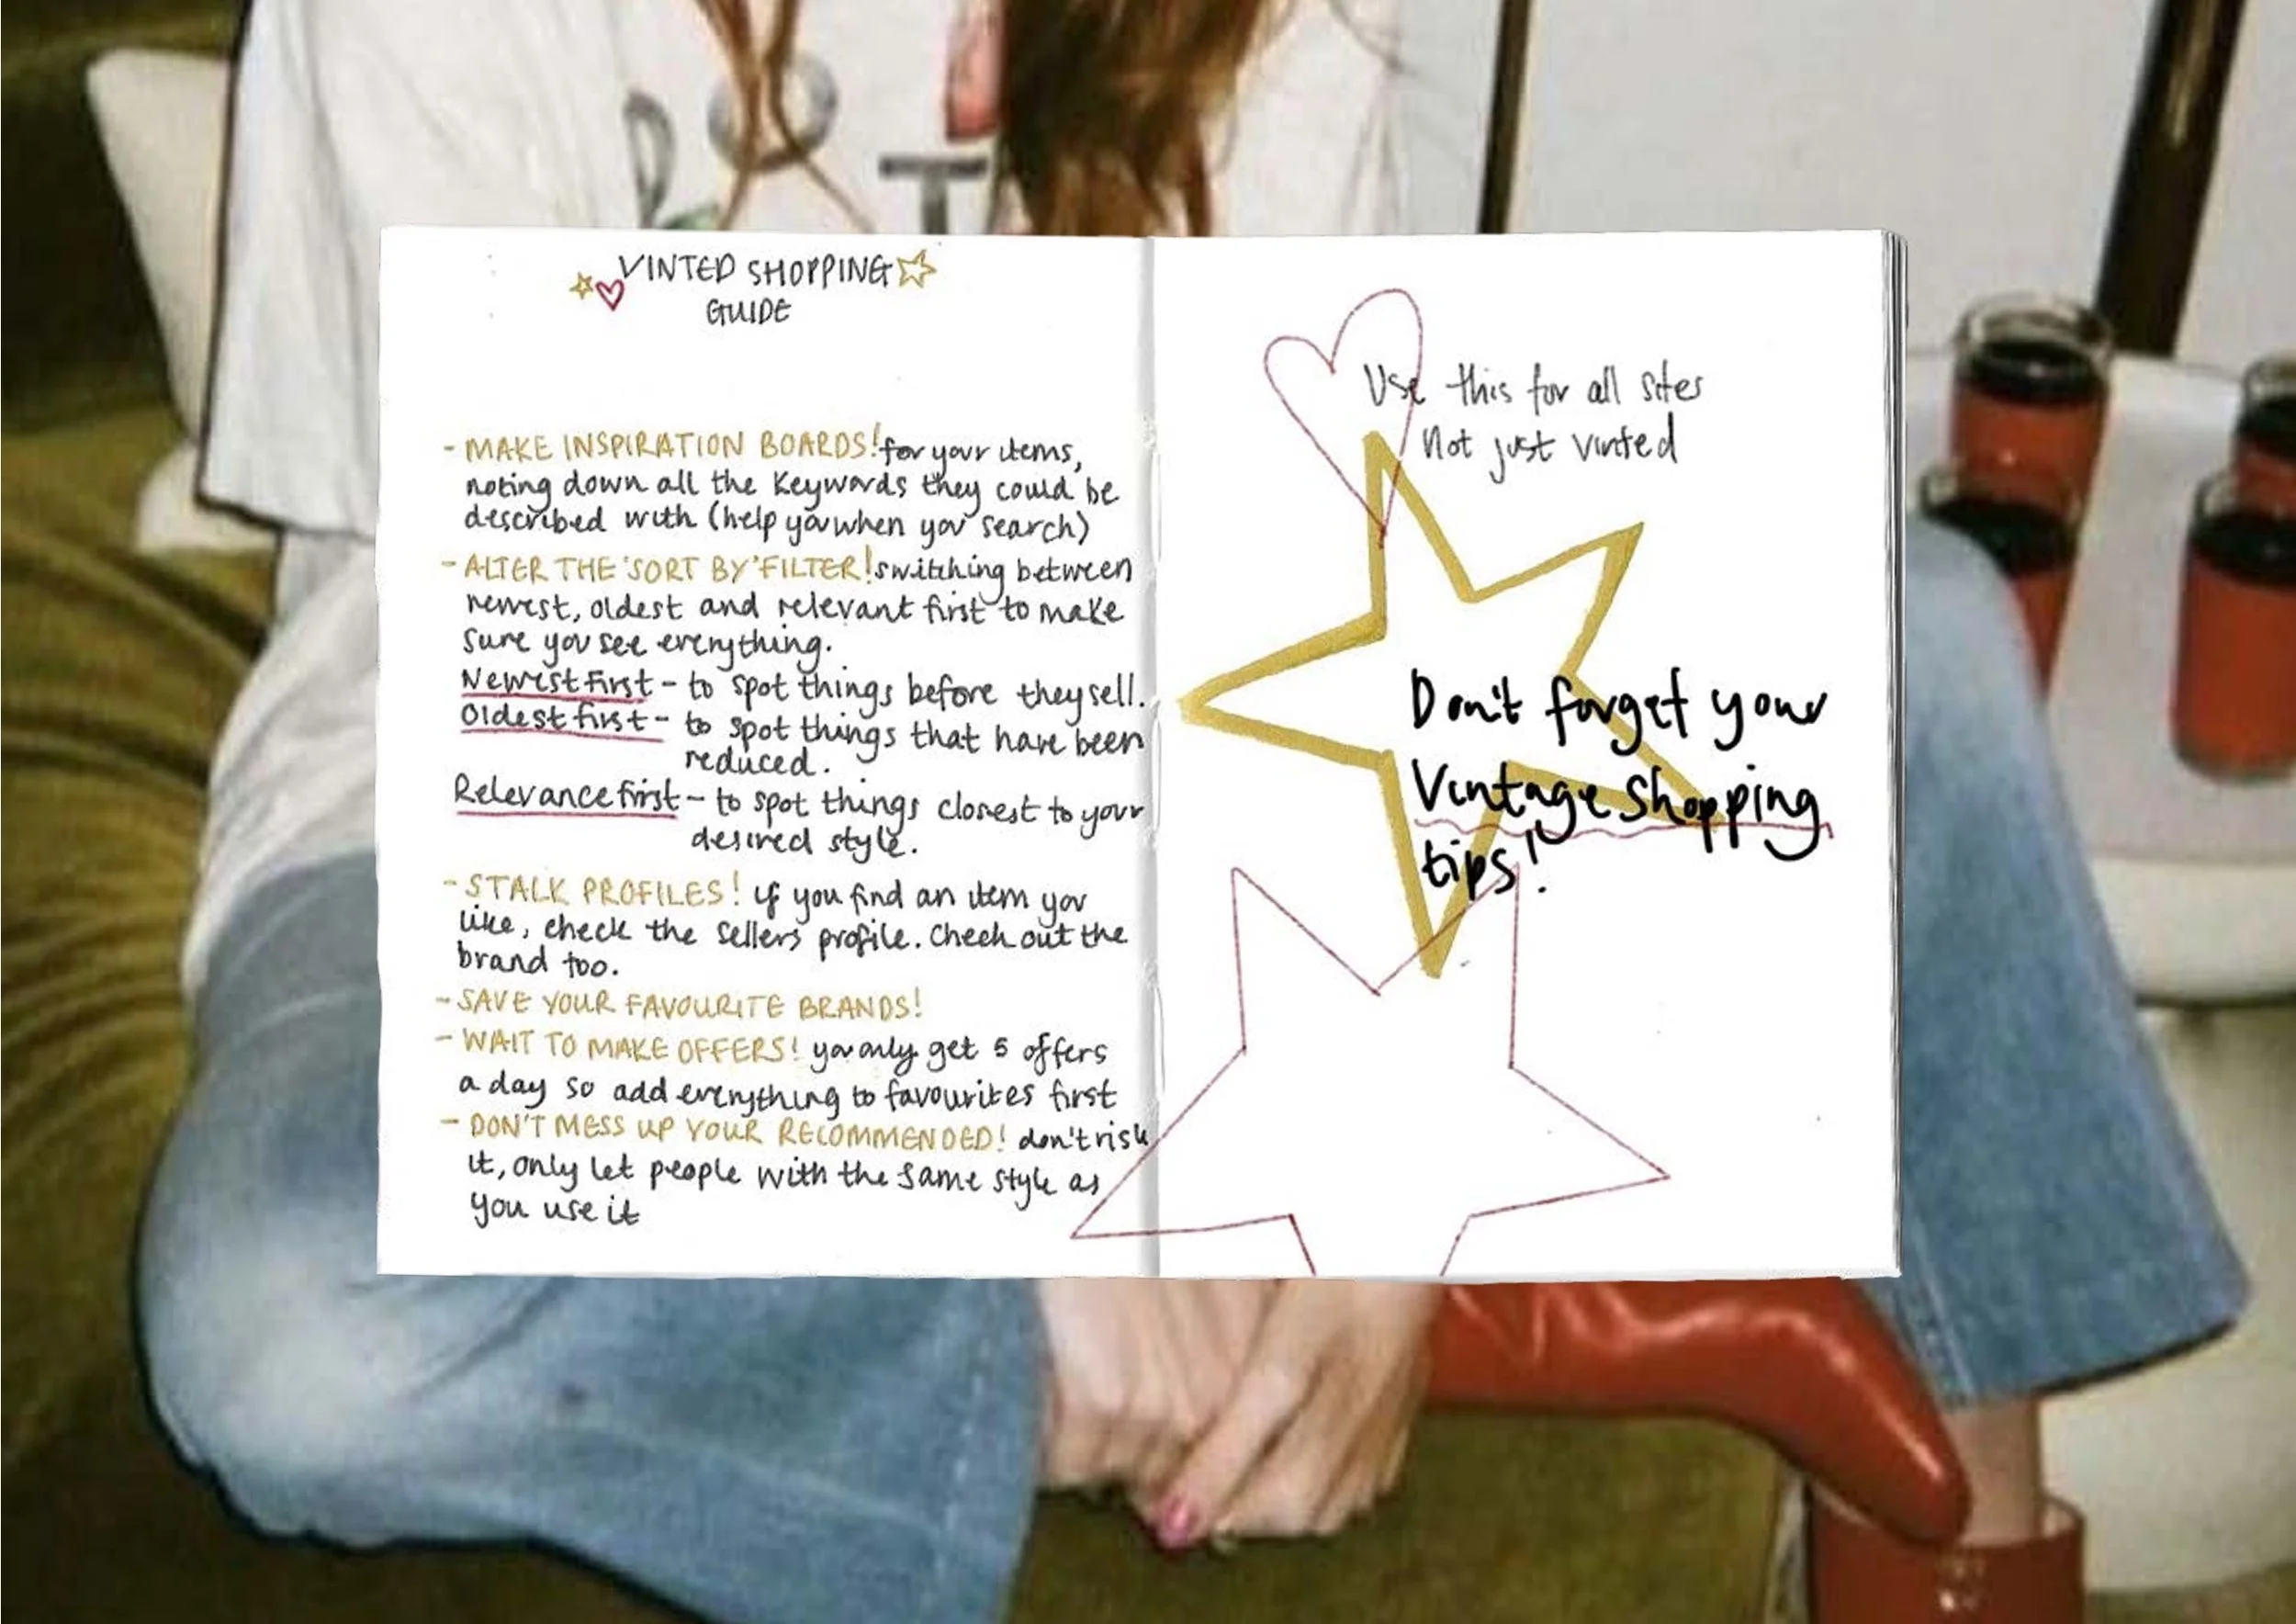 VINTED SHOPPING
GUIDE
- MAKE INSPIRATION BOARDS! for your items,
noting down all the keywords they could be
described with (help you when you search)
- ALTER THE 'SORT BY' FILTER! switching between
newest, oldest and relevant first to make
sure you see everything.
Newest first - to spot things before they sell.
Oldest first - to spot things that have been
reduced.
Relevance first - to spot things closest to your
desired style.
- STALK PROFILES! if you find an item you
like, check the sellers profile. Check out the
brand too.
- SAVE YOUR FAVOURITE BRANDS!
- WAIT TO MAKE OFFERS! you only get 5 offers
a day so add everything to favourites first
- DON'T MESS UP YOUR RECOMMENDED! don't risk
it, only let people with the same style as
you use it
Use this for all sites
Not just vinted
Don't forget your
Vintage shopping
tips!